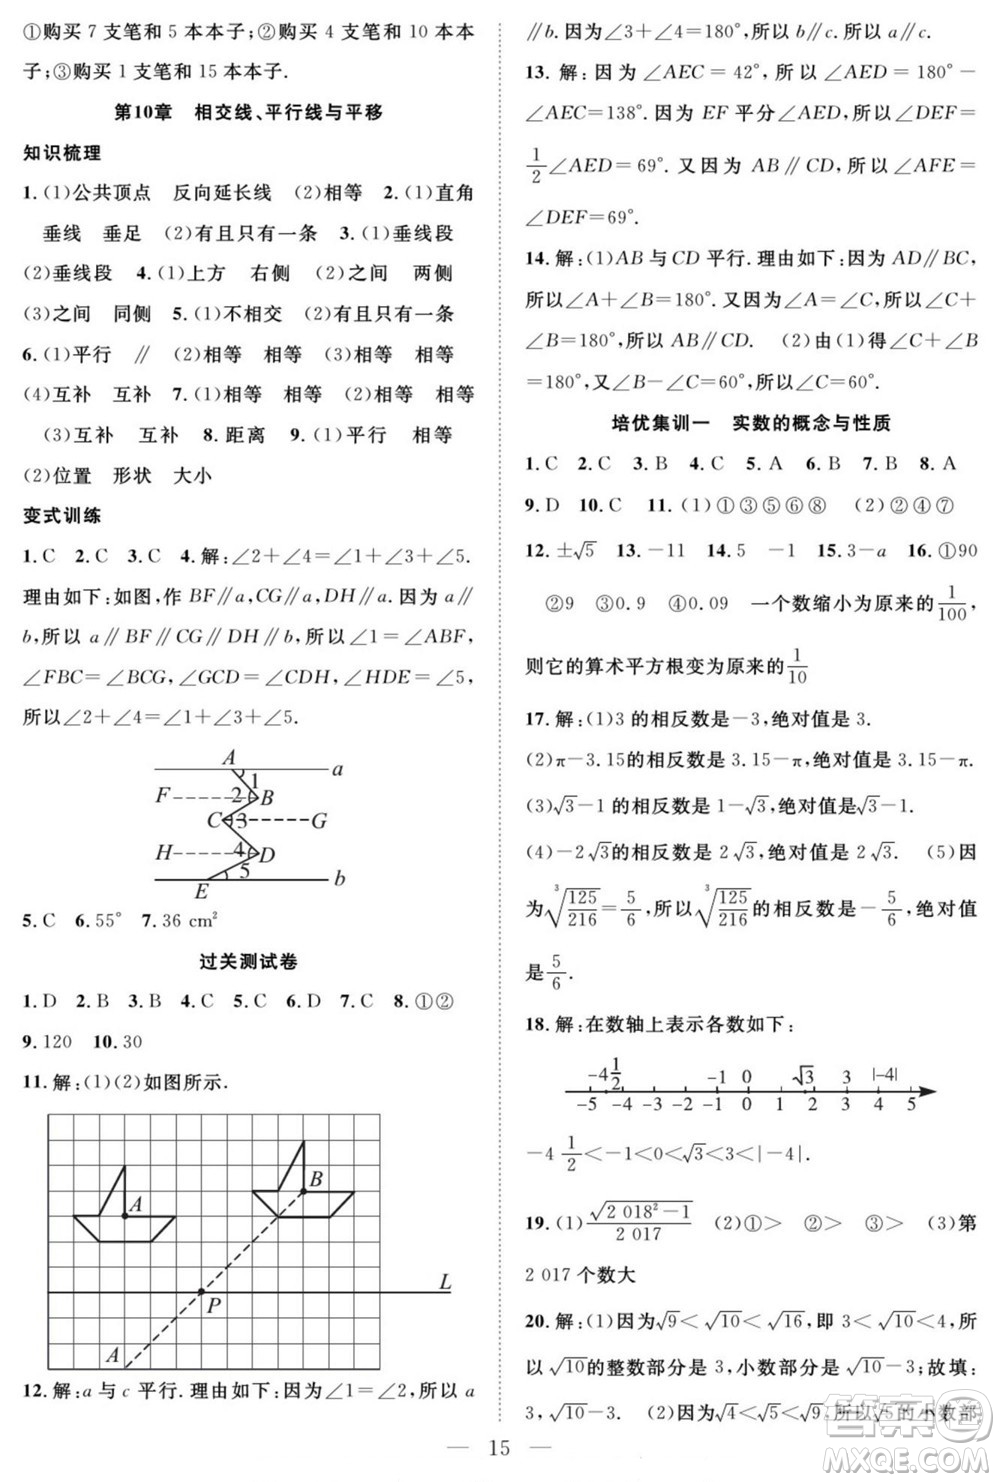 ①购买 7 支笔和 5 本本子;②购买 4 支笔和 10 本本
子;③购买 1 支笔和 15 本本子.
第10章 相交线、平行线与平移
知识梳理
1.(1)公共顶点 反向延长线 (2)相等 2.(1)直角
垂线 垂足 (2)有且只有一条 3.(1)垂线段
(2)垂线段 4.(1)上方 右侧 (2)之间 两侧
(3)之间 同侧 5.(1)不相交 (2)有且只有一条
6.(1)平行 ∥ (2)相等 相等 (3)相等 相等
(4)互补 互补 7.(1)相等 相等 (2)相等 相等
(3)互补 互补 8.距离 9.(1)平行 相等
(2)位置 形状 大小
变式训练
1.C 2.C 3.C 4.解:∠2+∠4=∠1+∠3+∠5.
理由如下:如图,作 BF∥a,CG∥a,DH∥a.因为 a∥
b,所以 a∥BF∥CG∥DH∥b,所以∠1=∠ABF,
∠FBC=∠BCG,∠GCD=∠CDH,∠HDE=∠5,
所以∠2+∠4=∠1+∠3+∠5.
A 1 a
F 2 B
C 3 G
H 4 D
5
E b
5.C 6.55° 7.36 cm²
过关测试卷
1.D 2.B 3.B 4.C 5.C 6.D 7.C 8.①②
9.120 10.30
11.解:(1)(2)如图所示.
B
A
L
P
A
12.解:a 与 c 平行.理由如下:因为∠1=∠2,所以 a
∥b.因为∠3+∠4=180°,所以 b∥c,所以 a∥c.
13.解:因为∠AEC=42°,所以∠AED=180°-
∠AEC=138°.因为 EF 平分∠AED,所以∠DEF=
1/2∠AED=69°.又因为 AB∥CD,所以∠AFE=
∠DEF=69°.
14.解:(1)AB 与 CD 平行.理由如下:因为 AD∥BC,
所以∠A+∠B=180°.又因为∠A=∠C,所以∠C+
∠B=180°,所以 AB∥CD. (2)由(1)得∠C+∠B
=180°,又∠B-∠C=60°,所以∠C=60°.
培优集训一 实数的概念与性质
1.C 2.C 3.B 4.C 5.A 6.B 7.B 8.A
9.D 10.C 11.(1)①③⑤⑥⑧ (2)②④⑦
12.±√5 13.-11 14.5 -1 15.3-a 16.①90
②9 ③0.9 ④0.09 一个数缩小为原来的1/100,
则它的算术平方根变为原来的1/10
17.解:(1)3 的相反数是-3,绝对值是 3.
(2)π-3.15的相反数是 3.15-π,绝对值是 3.15-π.
(3)√3-1 的相反数是 1-√3,绝对值是√3-1.
(4)-2√3的相反数是 2√3,绝对值是 2√3. (5)因
为∛(125/216)=5/6,所以∛(125/216)的相反数是-5/6,绝对值
是5/6.
18.解:在数轴上表示各数如下:
-4 1/2 -1 0 √3 3 |-4|
-5 -4 -3 -2 -1 0 1 2 3 4 5
-4 1/2<-1<0<√3<3<|-4|.
19.(1)√(2 018²-1)/2 017 (2)①> ②> ③> (3)第
2 017个数大
20.解:(1)因为√9<√10<√16,即 3<√10<4,所
以√10的整数部分是 3,小数部分是√10-3;故填:
3,√10-3. (2)因为√4<√5<√9,所以√5的小数部
15
答案圈
MXQE.COM